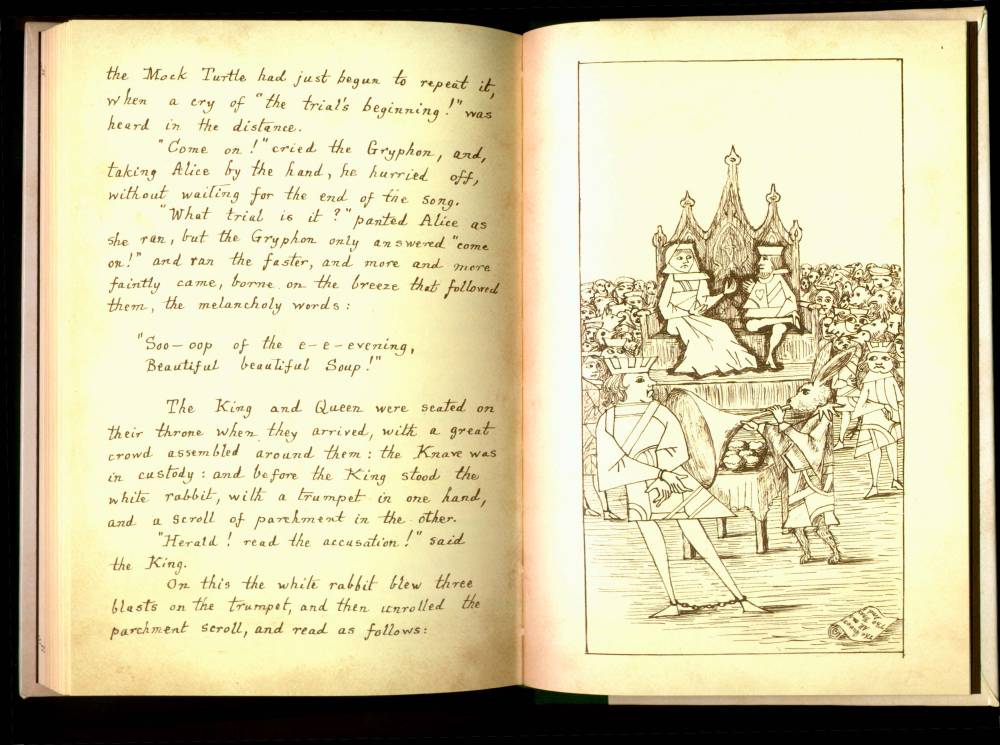 the Mock Turtle had just begun to repeat it,
when a cry of "the trial's beginning!" was
heard in the distance.
"Come on!" cried the Gryphon, and,
taking Alice by the hand, he hurried off,
without waiting for the end of the song.
"What trial is it?" panted Alice as
she ran, but the Gryphon only answered "come
on!" and ran the faster, and more and more
faintly came, borne on the breeze that followed
them, the melancholy words:
"Soo-oop of the e-e-evening,
Beautiful beautiful Soup!"
The King and Queen were seated on
their throne when they arrived, with a great
crowd assembled around them: the Knave was
in custody: and before the King stood the
white rabbit, with a trumpet in one hand,
and a scroll of parchment in the other.
"Herald! read the accusation!" said
the King.
On this the white rabbit blew three
blasts on the trumpet, and then unrolled the
parchment scroll, and read as follows: